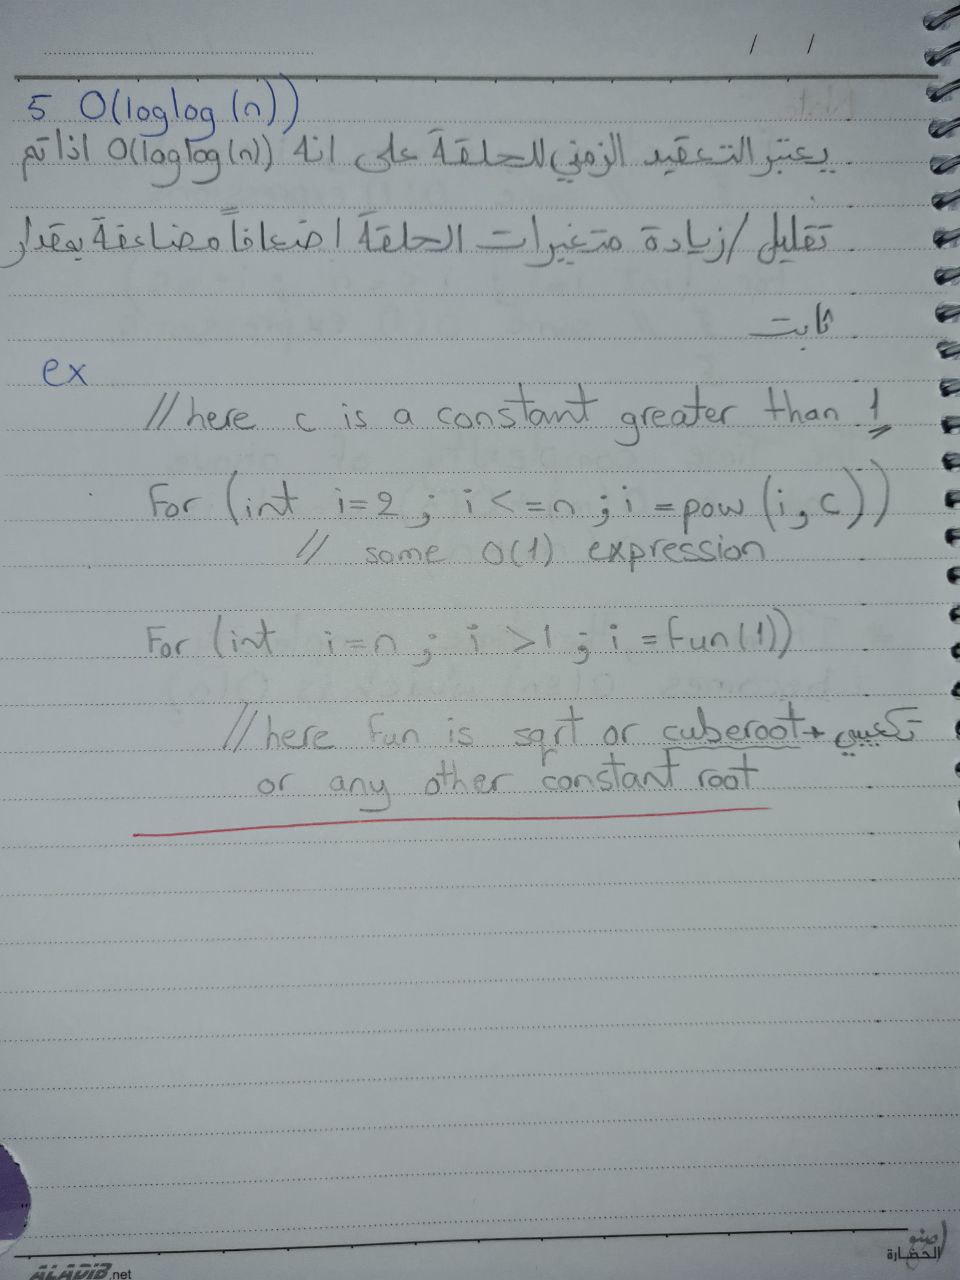 / /
5 O(loglog(n))
يعتبر التعقيد الزمني للحلقة على انه O(loglog(n)) اذا تم
تقليل / زيادة متغيرات الحلقة اضعافاً مضاعفة بمقدار
ثابت
ex
//here c is a constant greater than 1
For (int i=2 ; i <=n ; i =pow (i, c))
// some O(1) expression
For (int i=n ; i >1 ; i =fun(1))
//here fun is sqrt or cuberoot→ تكعيبي
or any other constant root
الحضارة
ALADIB.net